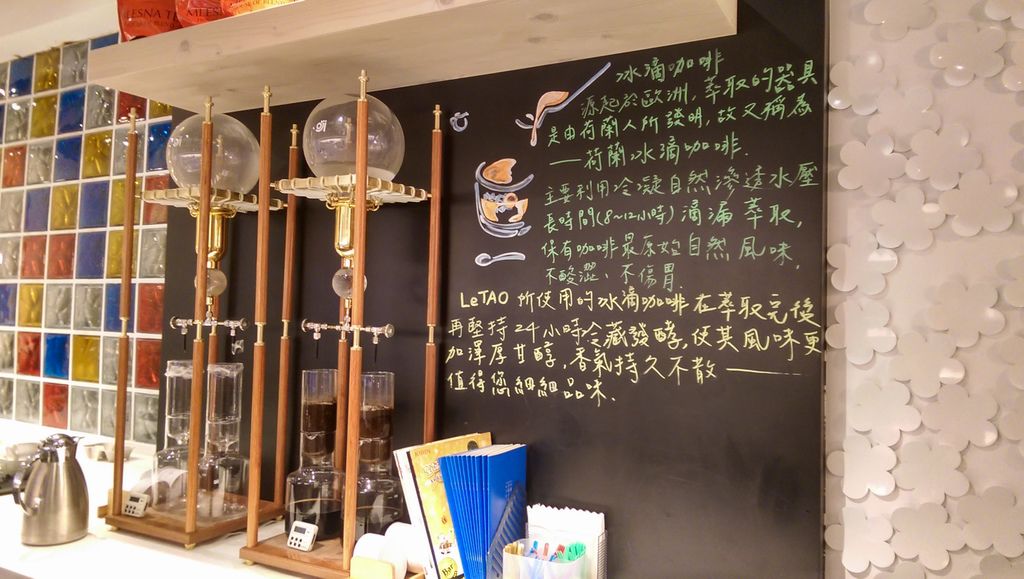 冰滴咖啡
源起於歐洲,萃取的器具
是由荷蘭人所發明,故又稱為
——荷蘭冰滴咖啡.
主要利用冷凝自然滲透水壓
長時間(8~12小時)滴漏萃取,
保有咖啡最原始自然風味,
不酸澀、不傷胃.
LeTAO 所使用的冰滴咖啡在萃取完後
再堅持24小時冷藏發酵,使其風味更
加澤厚甘醇,香氣持久不散——
值得您細細品味.